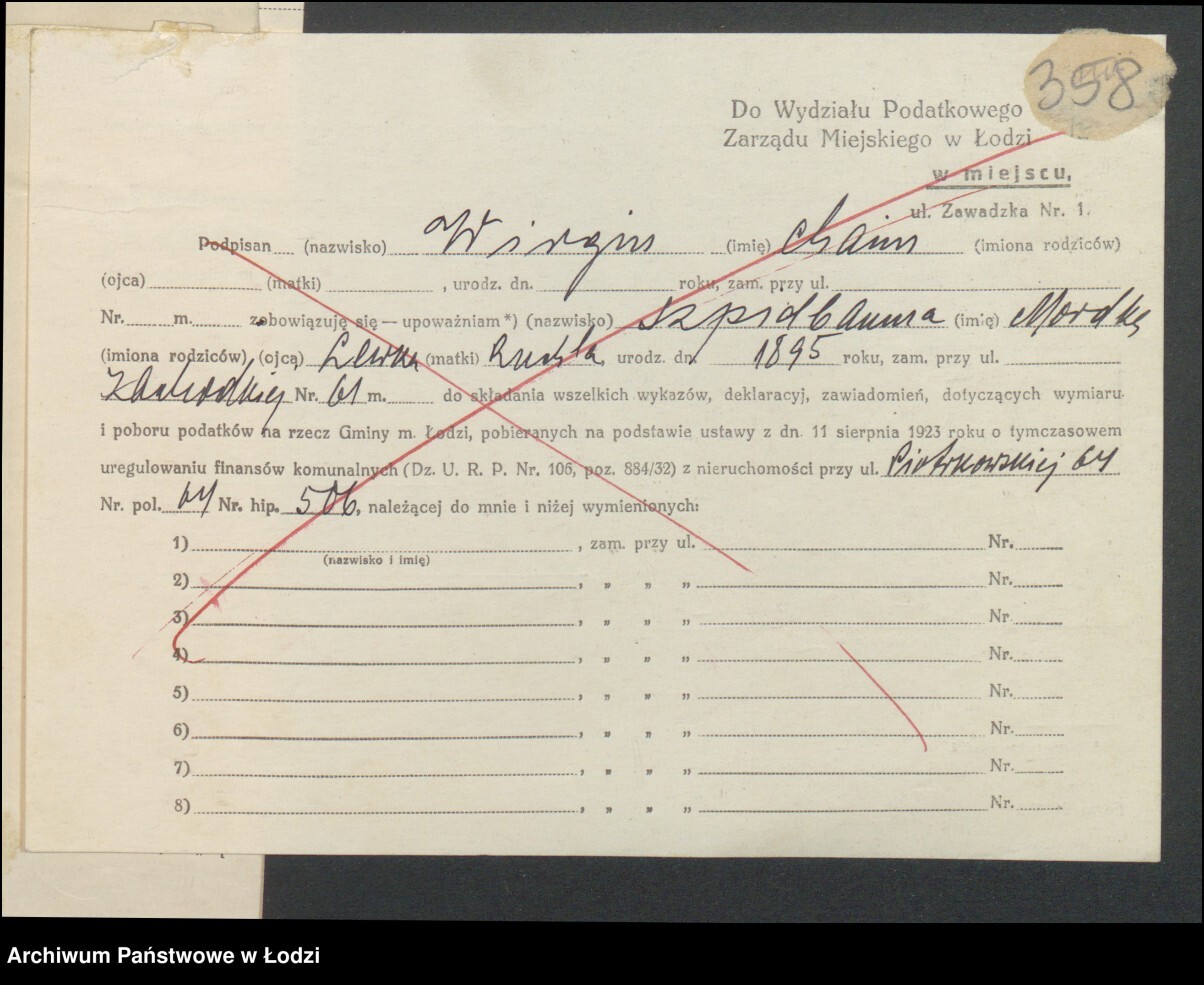 358
Do Wydziału Podatkowego
Zarządu Miejskiego w Łodzi
w miejscu,
ul. Zawadzka Nr. 1.
Podpisan (nazwisko) Wirgin (imię) Chaim (imiona rodziców)
(ojca) (matki) , urodz. dn. roku, zam. przy ul.
Nr. m. zobowiązuję się — upoważniam *) (nazwisko) Szpidbauma (imię) Mordkę
(imiona rodziców) (ojca) Lewka (matki) Ruchla, urodz. dn. 1895 roku, zam. przy ul.
Zawadzkiej Nr. 61 m. do składania wszelkich wykazów, deklaracyj, zawiadomień, dotyczących wymiaru
i poboru podatków na rzecz Gminy m. Łodzi, pobieranych na podstawie ustawy z dn. 11 sierpnia 1923 roku o tymczasowem
uregulowaniu finansów komunalnych (Dz. U. R. P. Nr. 106, poz. 884/32) z nieruchomości przy ul. Piotrkowskiej 64
Nr. pol. 64 Nr. hip. 506, należącej do mnie i niżej wymienionych:
1) , zam. przy ul. Nr.
(nazwisko i imię)
2) , „ „ „ Nr.
3) , „ „ „ Nr.
4) , „ „ „ Nr.
5) , „ „ „ Nr.
6) , „ „ „ Nr.
7) , „ „ „ Nr.
8) , „ „ „ Nr.
Archiwum Państwowe w Łodzi